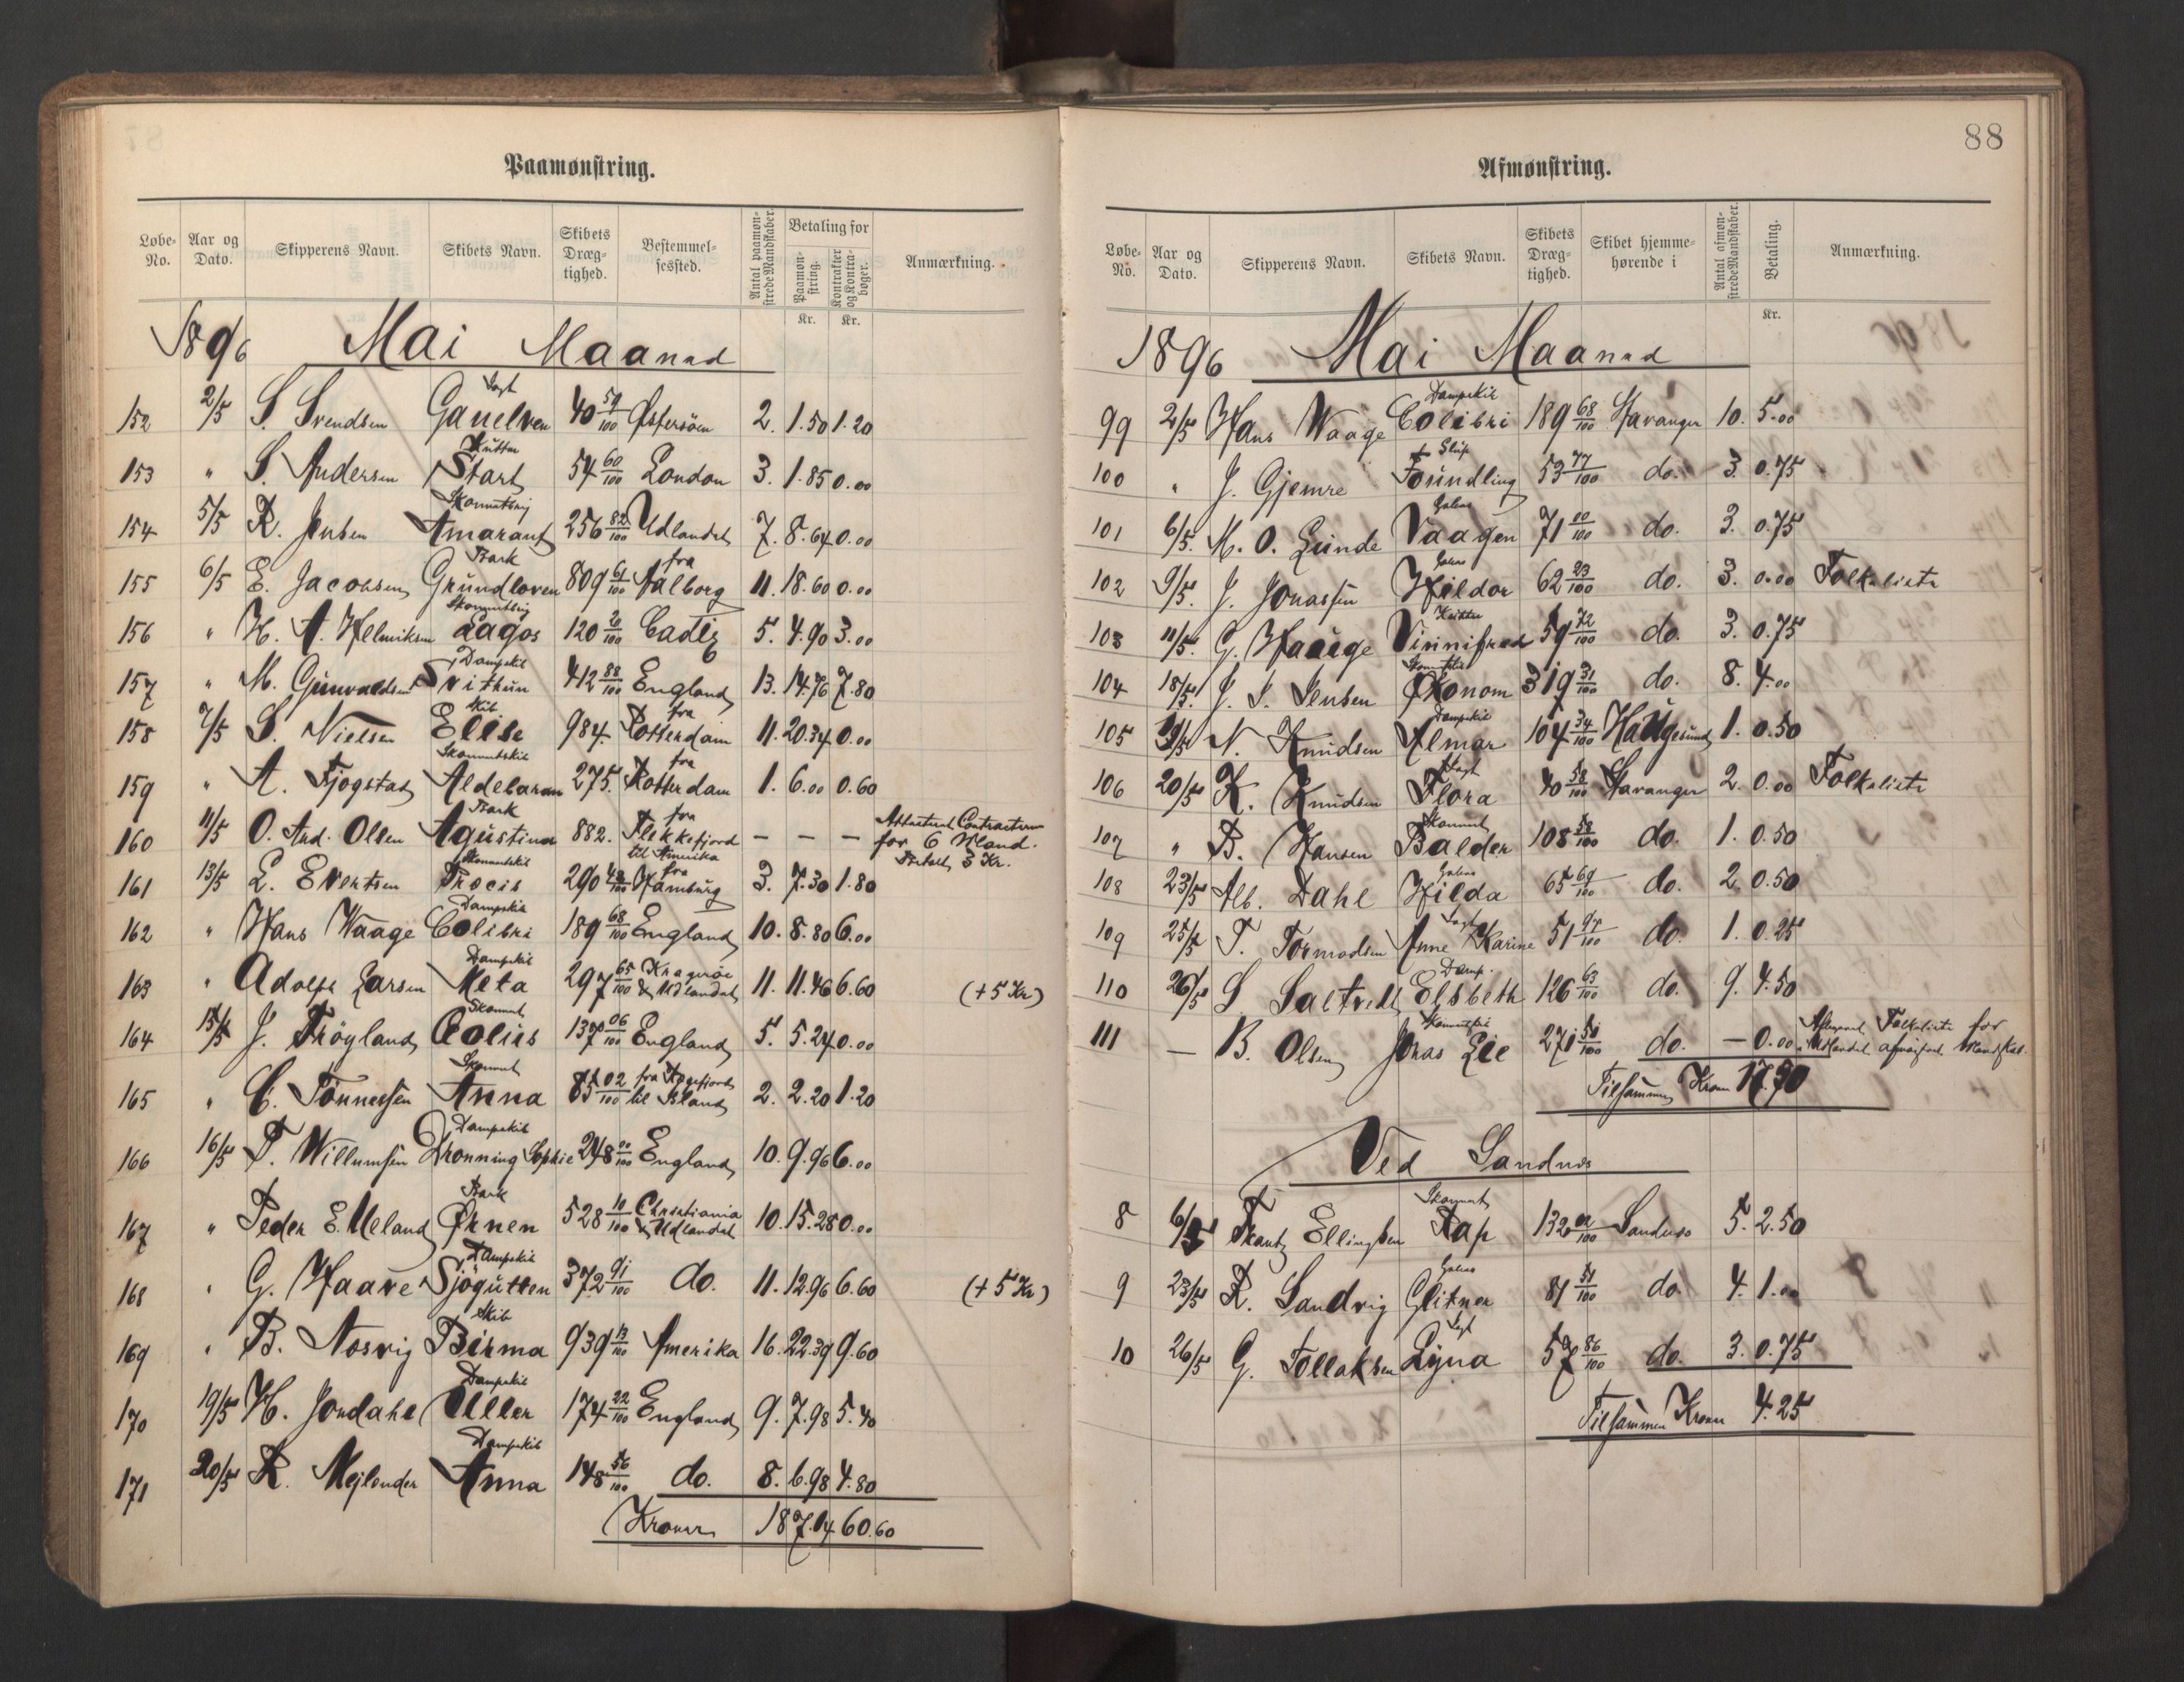 Paamønstring.
Løbe-No. Aar og Dato. Skipperens Navn. Skibets Navn. Skibets Drægtighed. Bestemmelsessted. Antal paamønstrede Mandskaber. Betaling for Paamønstring. Kontrakter og Kontrabøger. Anmærkning.
Kr. Kr.
1896 Mai Maaned
152 2/5 S. Svendsen Jagt Ganelven 40 59/100 Østersöen 2. 1.50 1.20
153 " S. Andersen Kutter Start 54 60/100 London 3. 1.85 0.00
154 5/5 R. Jensen Skonnertbrig Amarant 256 82/100 Udlandet 7. 8.64 0.00
155 6/5 E. Jacobsen Bark Grundloven 809 61/100 fra Aalborg 11. 18.60 0.00
156 " H. A. Helmiksen Skonnertbrig Lagos 120 20/100 Cadiz 5. 4.90 3.00
157 " M. Gunvaldsen Dampskib Svithun 412 88/100 England 13. 14.76 7.80
158 7/5 S. Nielsen Skib Elise 984. fra Rotterdam 11. 20.34 0.00
159 " A. Fjogstad Skonnertskib Aldebaran 275. fra Rotterdam 1. 6.00 0.60
160 11/5 O. And. Olsen Bark Agustina 882. fra Flekkefjord til Amerika — — — Contracten for 6 Mand. Betalt 3 Kr.
161 13/5 L. Evertsen Skonnertskib Procis 290 48/100 fra Hamburg 3. 7.30 1.80
162 " Hans Waage Dampskib Colibri 189 68/100 England 10. 8.80 6.00
163 " Adolph Larsen Dampskib Meta 297 65/100 Kragerøe & Udlandet 11. 11.46 6.60 (+5 Kr)
164 15/5 J. Tröyland Skonnert Eolus 137 06/100 England 5. 5.24 0.00
165 " C. Tönnessen Skonnert Anna 85 02/100 til Island 2. 2.20 1.20
166 16/5 T. Willumsen Dampskib Dronning Sophie 248 00/100 England 10. 9.96 6.00
167 " Peder E. Meland Bark Ørnen 528 10/100 Christiania & Udlandet 10. 15.28 0.00
168 " G. Haave Dampskib Sjögutten 372 91/100 do. 11. 12.96 6.60 (+5 Kr)
169 " B. Nosvig Skib Birma 939 13/100 Amerika 16. 22.39 9.60
170 19/5 H. Jondahl Dampskib Uller 174 22/100 England 9. 7.98 5.40
171 20/5 R. Mejlender Dampskib Anna 148 56/100 do. 8. 6.98 4.80
Kroner 187.14 60.60
88
Afmønstring.
Løbe-No. Aar og Dato. Skipperens Navn. Skibets Navn. Skibets Drægtighed. Skibet hjemmehørende i Antal afmønstrede Mandskaber. Betaling. Anmærkning.
Kr.
1896 Mai Maaned
99 2/5 Hans Waage Dampskib Colibri 189 68/100 Stavanger 10. 5.00
100 " J. Gjemre Slup Foundling 53 77/100 do. 3. 0.75
101 6/5. M. O. Lunde Galeas Vaagen 71 00/100 do. 3. 0.75
102 9/5. J. Jonassen Galeas Hildor 62 23/100 do. 3. 0.00 Folkeliste
103 11/5. G. Hauge Kutter Vinnifred 59 72/100 do. 3. 0.75
104 18/5. J. S. Jensen Økonom 319 31/100 do. 8. 4.00
105 19/5 N. Knudsen Dampskib Almar 104 34/100 Haugesund 1. 0.50
106 20/5 K. Knudsen Jagt Flora 40 58/100 Stavanger 2. 0.00 Folkeliste
107 " B. Hansen Skonnert Balder 108 58/100 do. 1. 0.50
108 23/5 Alb. Dahl Galeas Hilda 65 69/100 do. 2. 0.50
109 25/5 T. Tormodsen Jagt Anne Karine 51 97/100 do. 1. 0.25
110 26/5 S Saltvedt Damp. Elsbeth 126 63/100 do. 9. 4.50
111 — B. Olsen Jonas Lie 271 51/100 do. — 0.00 Folkeliste for i Udlandet Mandskab.
Tilsammen Kroner 17.70
Ved Sandnes
8 6/5 Ellingsen Skonnert Rap 132 02/100 Sandnes 5. 2.50
9 23/5 R. Sandvig Galeas Glitner 81 51/100 do 4. 1.00
10 26/5 G. Tollaksen Jagt Lyna 57 86/100 do. 3. 0.75
Tilsammen Kroner 4.25